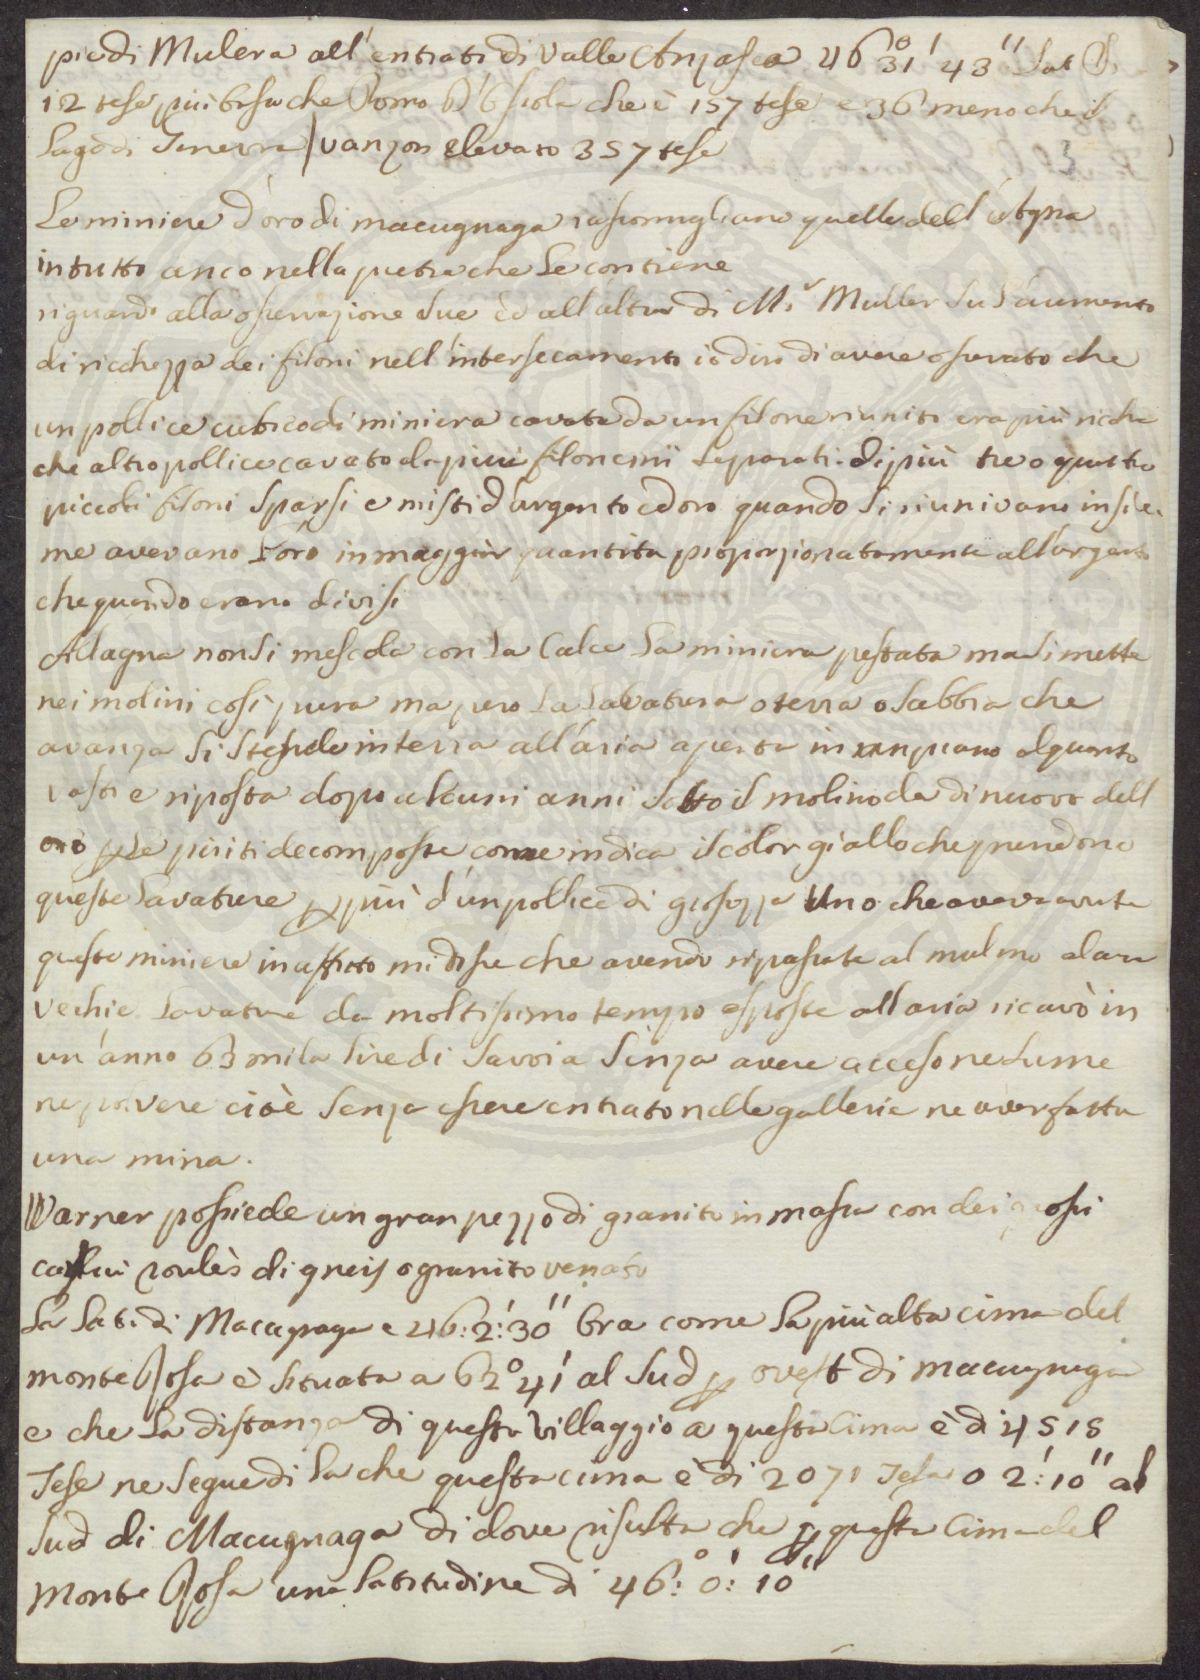 piedi Mulera all'entrati di Valle Anzasca 46° 31' 43'' Lat
12 tese più bassa che Domo d'Ossola che è 157 tese e 36 meno che il
Lago di Genevra / vanzon elevato 357 tese
3
Le miniere d'oro di macugnaga rassomigliano quelle dell'
in tutto anco nella pietra che le contiene
riguardo alla osservazione sue ed all'altra di Mr Muller su l'aumento
di richezza dei filoni nell'intersecamento io diro di avere osservato che
un pollice cubico di miniera cavata da un filone riunito era più richa
che altro pollice cavato da più filoncini separati. di più tre o quattro
piccoli filoni sparsi e misti d'argento ed oro quando si riunivano insie-
me avevano l'oro in maggior quantita proporzionatamente all'argento
che quando erano divisi
Allagna non si mescola con la Calce la miniera pestata ma si mette
nei molini cosi pura ma pero la lavatura o terra o sabbia che
avanza si stende in terra all'aria aperta in un piano alquanto
vasto e riposta dopo alcuni anni sotto il molino da di nuovo dell
oro p le piriti decomposte come indica il color giallo che prendono
queste lavature p più d'un pollice di grossezza Uno che aveva avuta
queste miniere in affitto mi disse che avendo ripassate al mulino alcune
vechie lavature da moltissimo tempo esposte all'aria ricavò in
un'anno 63 mila lire di Savoia senza avere acceso ne lume
ne polvere cioè senza essere entrato nelle gallerie ne aver fatta
una mina.
Warner possiede un gran pezzo di granito in massa con dei grossi
roulès di gneis o granito venato
La Lati. di Macugnaga e 46: 2': 30'' Ora come la più alta cima del
monte Rosa è situata a 62° 41' al Sud p ovest di macugnaga
e che la distanza di questo villaggio a questa Cima è di 4515
Tese ne segue di la che questa cima è di 2071 Tesa o 2': 10'' al
Sud di Macugnaga di dove risulta che p questa Cima del
Monte Rosa una latitudine di 46°: 0': 10''